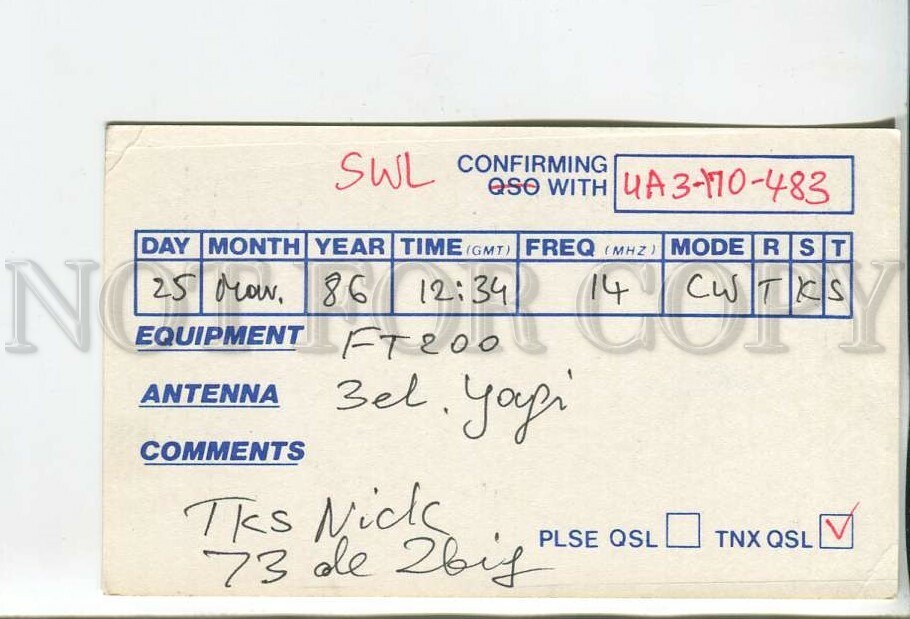 SWL CONFIRMING
QSO WITH UA3-170-483
DAY MONTH YEAR TIME (GMT) FREQ (MHZ) MODE R S T
25 Mar. 86 12:34 14 CW T K S
NOT FOR COPY
EQUIPMENT FT200
ANTENNA 3el. Yagi
COMMENTS
Tks Nick
73 de Zbig
PLSE QSL TNX QSL